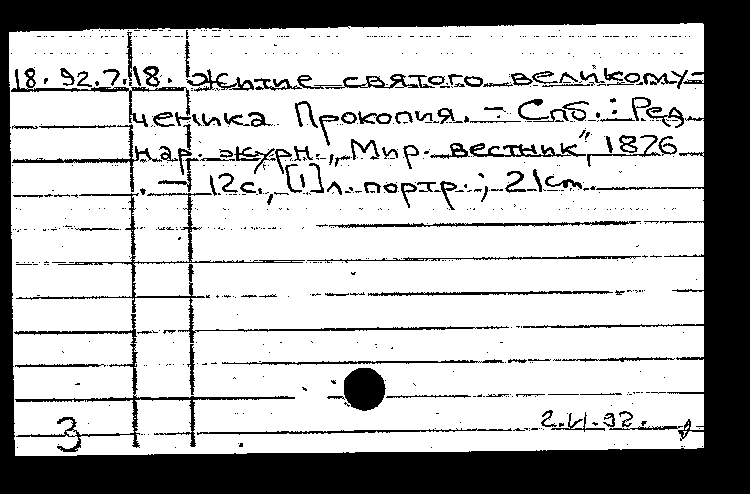 18.92.7.18. Житие святого великому-
ченика Прокопия. – Спб.: Ред.
нар. журн. „Мир. вестник", 1876
. – 12с., [1]л. портр.; 21см.
3